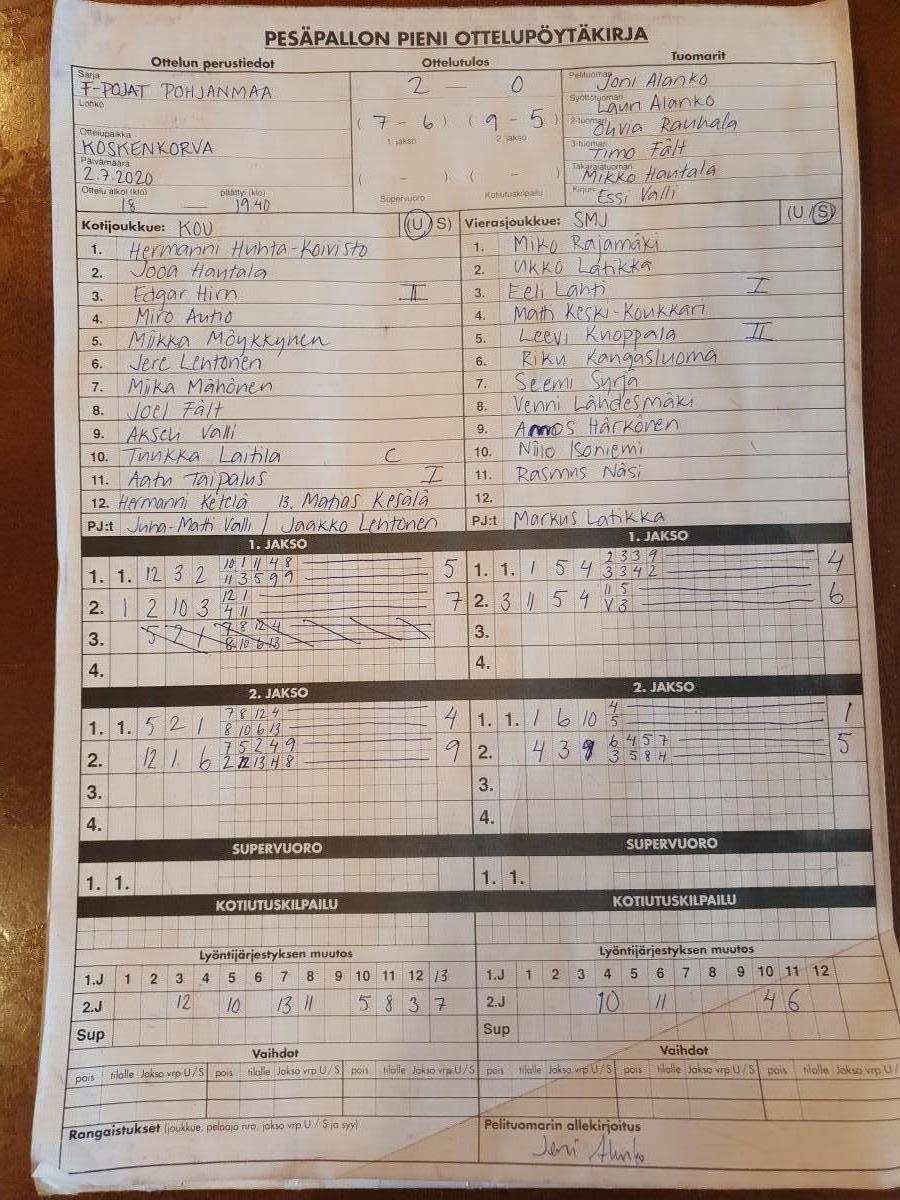 PESÄPALLON PIENI OTTELUPÖYTÄKIRJA
Ottelun perustiedot
Sarja
F-POJAT POHJANMAA
Lohko
Ottelupaikka
KOSKENKORVA
Päivämäärä
2.7.2020
Ottelu alkoi (klo) päättyi (klo)
18 — 19.40
Ottelutulos
2 — 0
( 7 - 6 ) ( 9 - 5 )
1. jakso 2. jakso
( - ) ( - )
Supervuoro Kotiutuskilpailu
Tuomarit
Pelituomari Joni Alanko
Syöttötuomari Lauri Alanko
2-tuomari Olivia Rauhala
3-tuomari Timo Fält
Takarajatuomari Mikko Hautala
Kirjuri Essi Valli
Kotijoukkue: KOU (U/S)
1. Hermanni Huhta-Koivisto
2. Jooa Hautala
3. Edgar Hirn II
4. Miro Autio
5. Miikka Möykkynen
6. Jere Lehtonen
7. Miika Mähönen
8. Joel Fält
9. Akseli Valli
10. Tuukka Laitila C
11. Aatu Taipalus I
12. Hermanni Ketelä 13. Matias Kesälä
PJ:t Juha-Matti Valli / Jaakko Lehtonen
Vierasjoukkue: SMJ (U/S)
1. Miko Rajamäki
2. Ukko Latikka
3. Eeli Lahti I
4. Matti Keski-Koukkari
5. Leevi Knoppala II
6. Riku Kangasluoma
7. Seemi Syrjä
8. Venni Ländesmäki
9. Amos Härkönen
10. Niilo Isoniemi
11. Rasmus Näsi
12.
PJ:t Markus Latikka
1. JAKSO
1. 1. 12 3 2 10 1 11 4 8 5
11 3 5 9 9
2. 1 2 10 3 12 1 7
4 11
3. 5 2 1 7 8 12 4
8 10 6 13
4.
1. JAKSO
1. 1. 1 5 4 2 3 3 9 4
3 3 4 2
2. 3 11 5 4 11 5 6
V 3
3.
4.
2. JAKSO
1. 1. 5 2 1 7 8 12 4 4
8 10 6 13
2. 12 1 6 7 5 2 4 9 9
2 12 13 4 8
3.
4.
2. JAKSO
1. 1. 1 6 10 4 1
5
2. 4 3 9 6 4 5 7 5
3 5 8 4
3.
4.
SUPERVUORO
1. 1.
SUPERVUORO
1. 1.
KOTIUTUSKILPAILU
KOTIUTUSKILPAILU
Lyöntijärjestyksen muutos
1.J 1 2 3 4 5 6 7 8 9 10 11 12 13
2.J 12 10 13 11 5 8 3 7
Sup
Lyöntijärjestyksen muutos
1.J 1 2 3 4 5 6 7 8 9 10 11 12
2.J 10 11 4 6
Sup
Vaihdot
pois tilalle Jakso vrp U/S pois tilalle Jakso vrp U/S pois tilalle Jakso vrp U/S
Vaihdot
pois tilalle Jakso vrp U/S pois tilalle Jakso vrp U/S pois tilalle Jakso vrp U/
Rangaistukset (joukkue, pelaaja nro, jakso vrp U / S ja syy)
Pelituomarin allekirjoitus
Joni Alanko